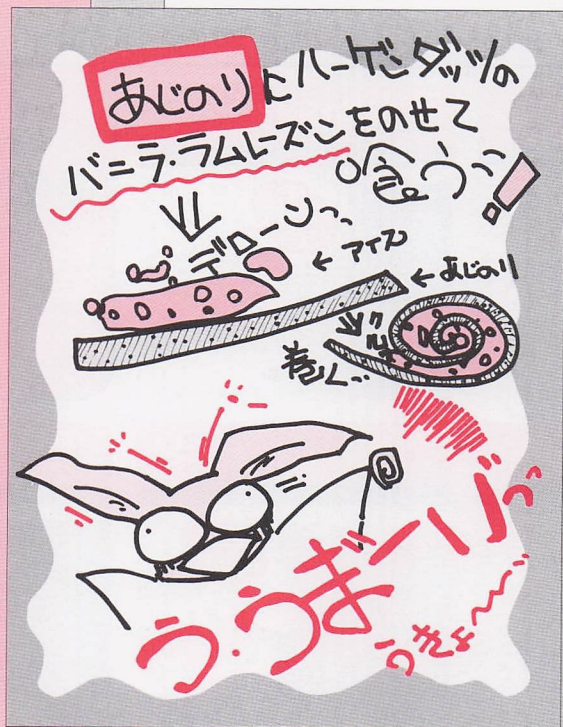 あじのりにハーゲンダッツの
バニラ・ラムレーズンをのせて
喰うっ!
デローンっ
←アイス
←あじのり
巻く…
う・うぎーっ